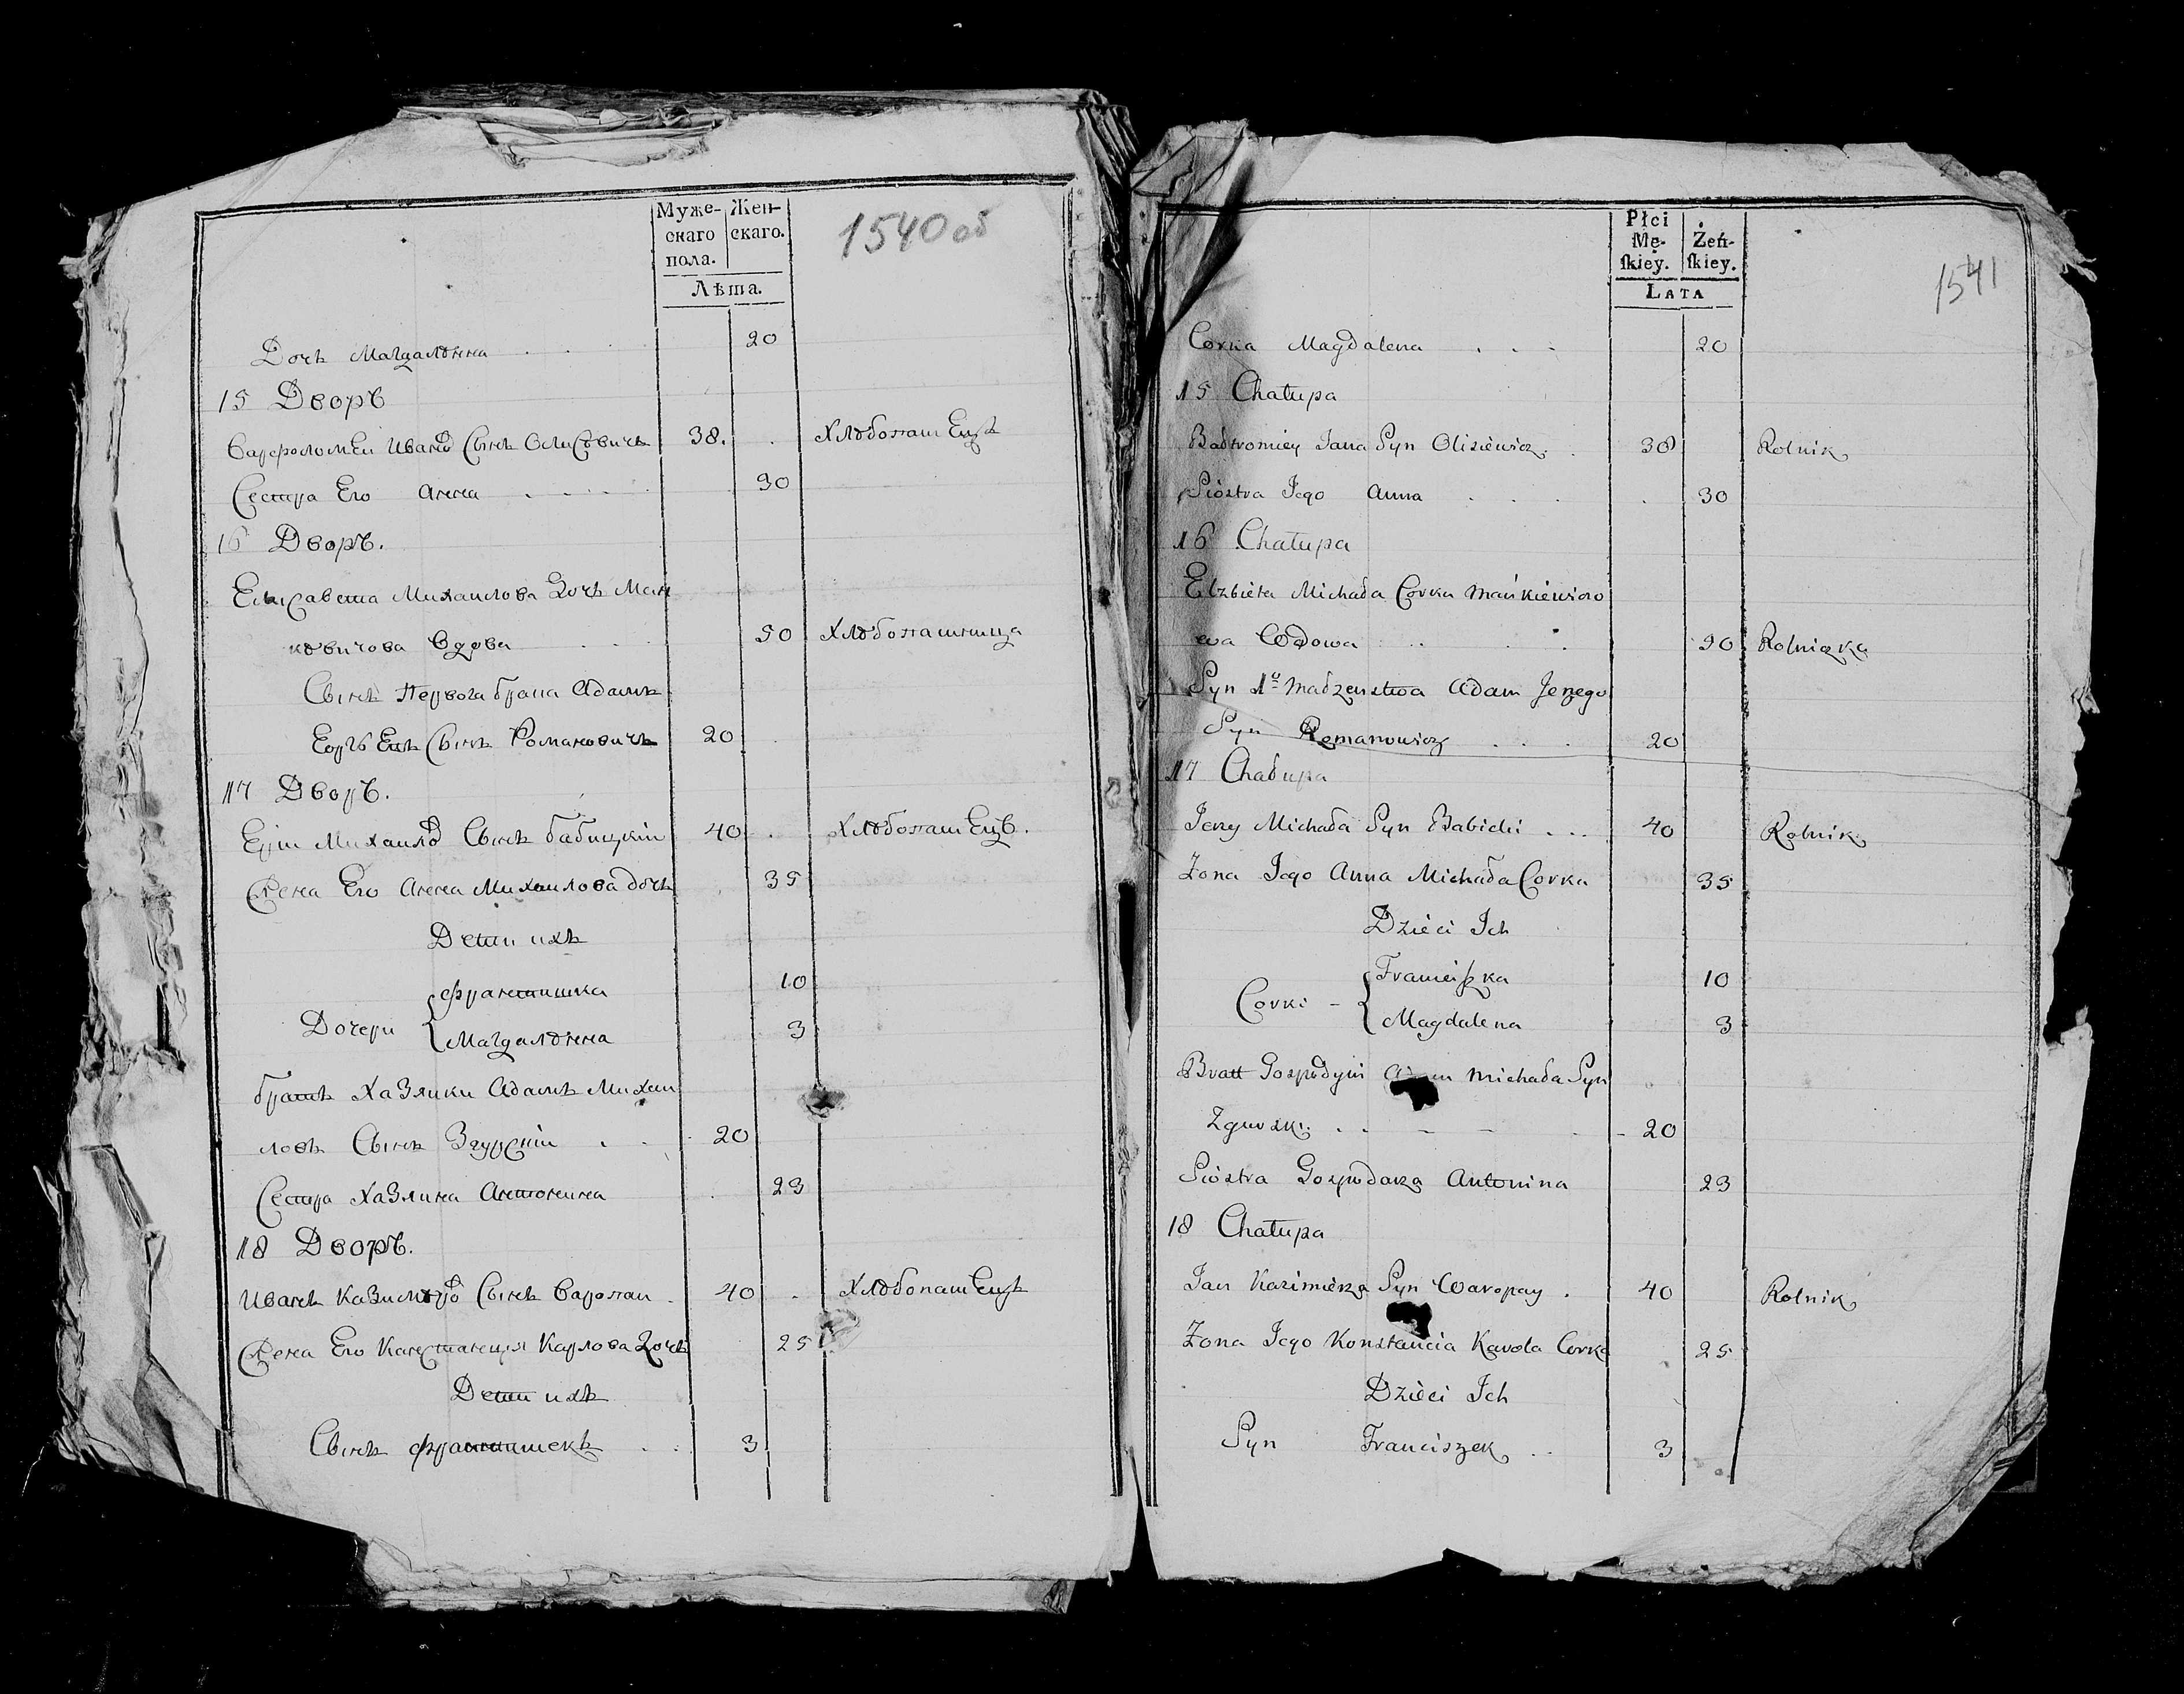 Муже-
скаго
пола.
Жен-
скаго.
Лѣта.
1540 об
Дочь Магдалѣнна . . . 20
15 Дворъ
Варфоломей Ивановъ Сынъ Олисѣвичь 38. . Хлѣбопашецъ
Сестра Его Анна . . . . 30
16 Дворъ.
Елисавета Михаилова Дочь Мань
кѣвичова Вдова . . . 50 Хлѣбопашница
Сынъ Перваго брака Адамъ
Сынъ Романовичъ 20
17 Дворъ.
Ерiи Михаиловъ Сынъ Бабицкiи 40 . Хлѣбопашецъ.
Жена Его Анна Михаилова дочь . 35
Дети ихъ
Дочери { Франтишка 10
Магдалѣнна 3
братъ Хазяики Адамъ Михаи
ловъ Сынъ Згурскiи . . 20
Сестра Хазяина Антонина . 23
18 Дворъ.
Иванъ Казимировъ Сынъ Варопаи . 40 . Хлѣбопашецъ
Жена Его Констанцiя Карлова Дочь 25
Дети ихъ
Сынъ Франтишекъ . . 3
Płci
Mę-
skiey.
Żeń-
skiey.
LATA
1541
Corka Magdalena . . . 20
15 Chałupa
Bałtromiey Jana Syn Olisiewicz . 38 Rolnik
Siostra Jego Anna . . . . 30
16 Chałupa
Elzbieta Michała Corka Mańkiewiczo
wa Wdowa . . . . Rolniczka
Syn 1º Małzenstwa Adam Jerzego
Syn Romanowicz . . . 20
17 Chałupa
Jerzy Michała Syn Babicki . . . 40 Rolnik
Zona Jego Anna Michała Corka 35
Dzieci Ich
Corki - { Franciszka 10
Magdalena 3
Bratt Gospodyni Michała Syn
Zgurski . . - - - 20
Siostra Gospodarza Antonina 23
18 Chałupa
Jan Kazimierza Syn Waropay . 40 Rolnik
Zona Jego Konstancia Karola Corka 25
Dzieci Ich
Syn Franciszek . . 3